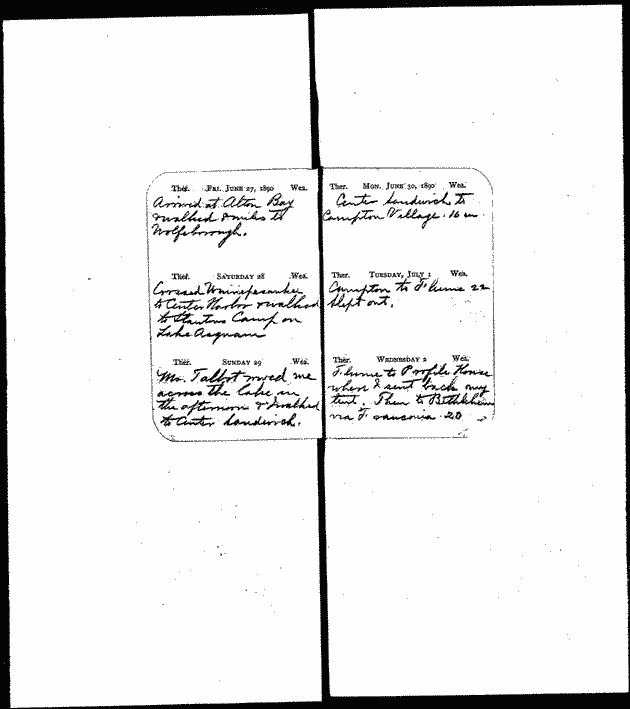 Ther. FRI. JUNE 27, 1890 Wea.
Arrived at Alton Bay
& walked 8 miles to
Wolfeborough.
Ther. SATURDAY 28 Wea.
Crossed Winnipesaukee
to Center Harbor & walked
to Stantons Camp on
Lake Asquam
Ther. SUNDAY 29 Wea.
Mr. Talbot rowed me
across the Lake in
the afternoon & I walked
to Center Sandwich.
Ther. MON. JUNE 30, 1890 Wea.
Center Sandwich to
Campton Village. 16 m
Ther. TUESDAY, JULY 1 Wea.
Campton to Flume 22
Slept out.
Ther. WEDNESDAY 2 Wea.
Flume to Profile House
where I sent back my
tent. Then to Bethlehem
via Franconia 20